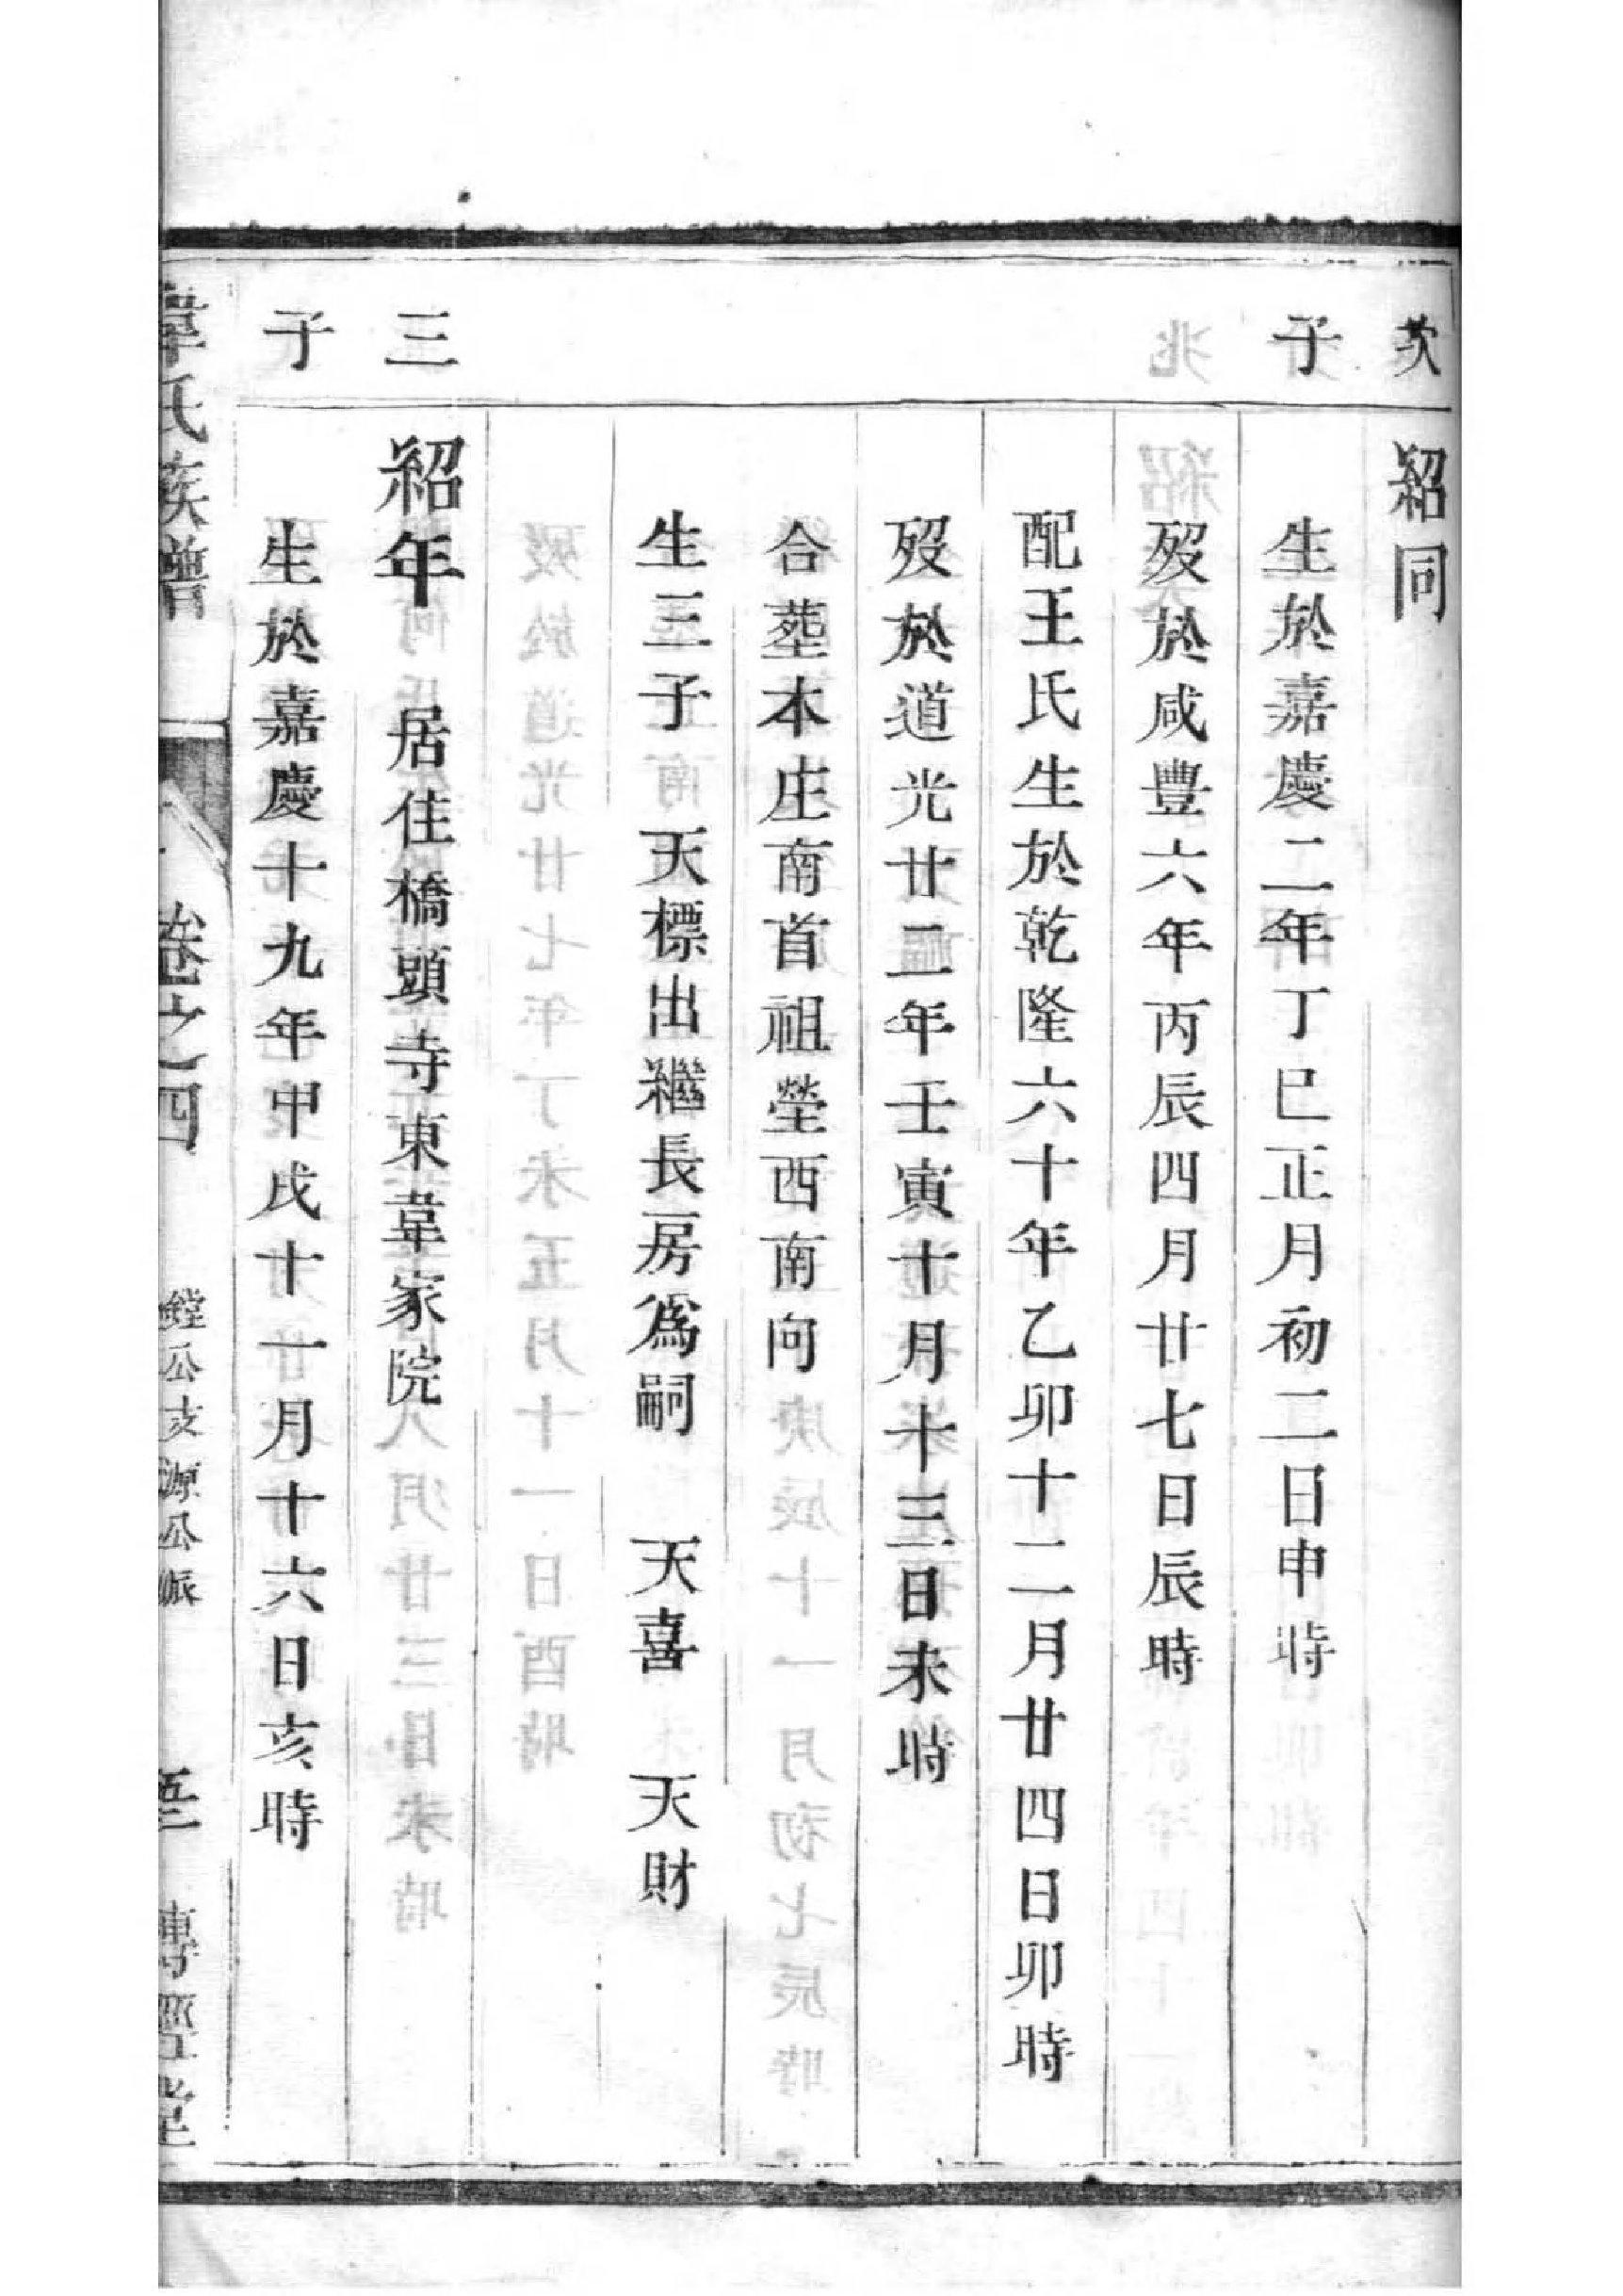 次
紹同
子
生於嘉慶二年丁巳正月初二日申時
歿於咸豐六年丙辰四月廿七日辰時
配王氏生於乾隆六十年乙卯十二月廿四日卯時
歿於道光廿二年壬寅十月十三日未時
合塟本庄南首祖塋西南向
生三子 天標出繼長房爲嗣 天喜 天財
三
紹年 居住橋頭寺東韋家院
子
生於嘉慶十九年甲戌十一月十六日亥時
韋氏族譜 卷之四 鏜公支源公派 傳經堂